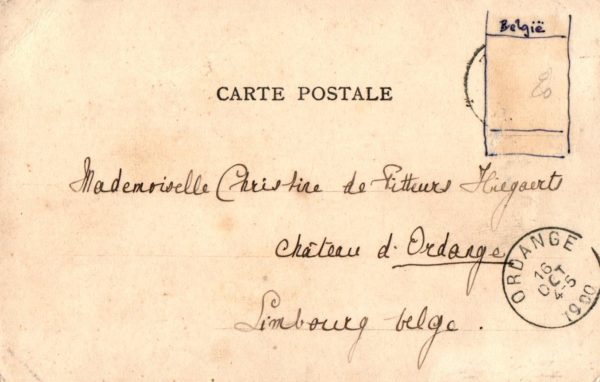 België
CARTE POSTALE
Mademoiselle Christine de Pitteurs Hiégaerts
Château d'Ordange
Limbourg belge.
ORDANGE
16
OCT
4-5
1900